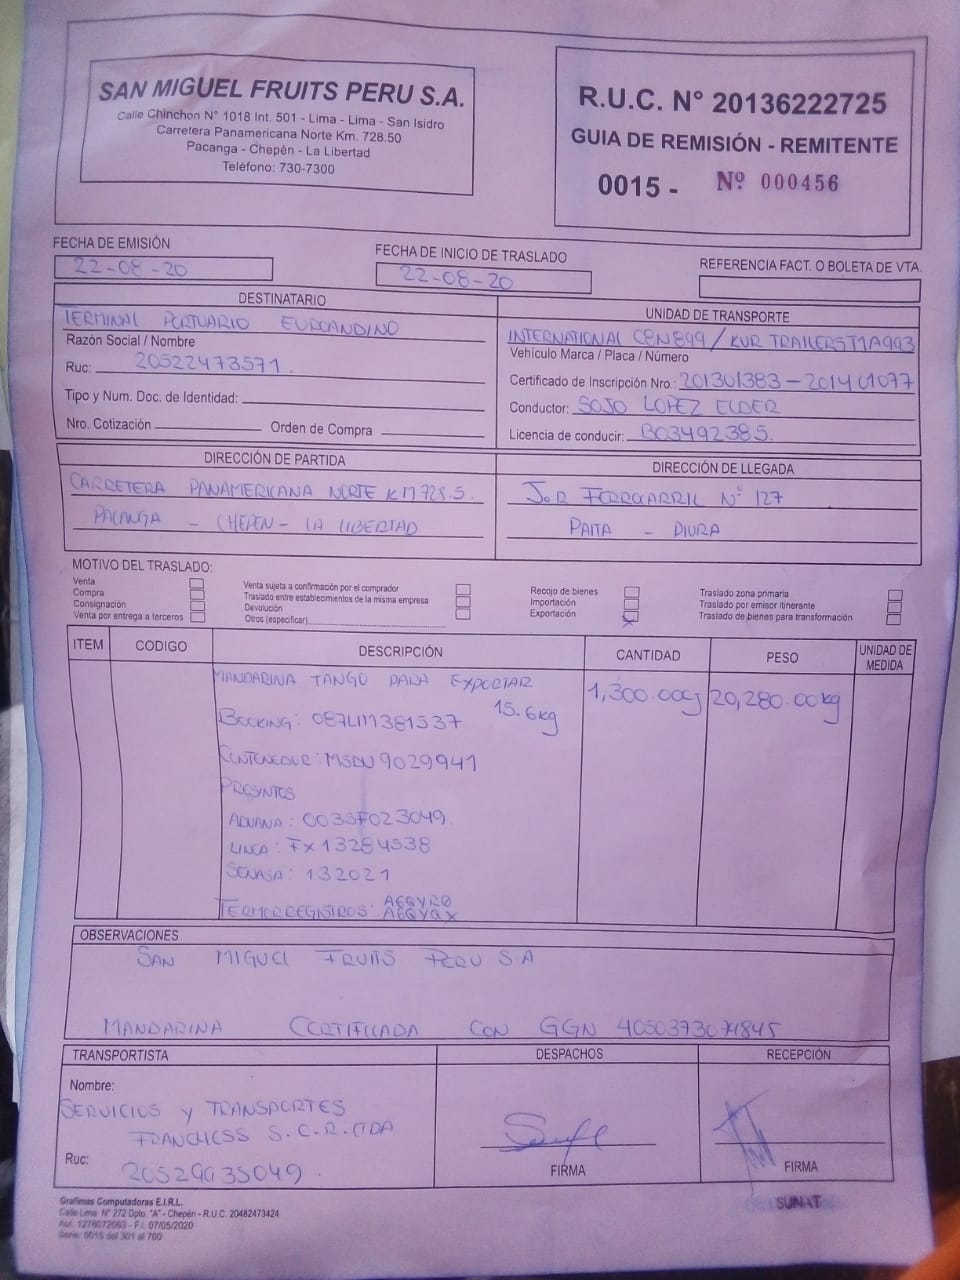 SAN MIGUEL FRUITS PERU S.A.
Calle Chinchon N° 1018 Int. 501 - Lima - Lima - San Isidro
Carretera Panamericana Norte Km. 728.50
Pacanga - Chepén - La Libertad
Teléfono: 730-7300
R.U.C. N° 20136222725
GUIA DE REMISIÓN - REMITENTE
0015 - Nº 000456
FECHA DE EMISIÓN
22-08-20
FECHA DE INICIO DE TRASLADO
22-08-20
REFERENCIA FACT. O BOLETA DE VTA.
DESTINATARIO
TERMINAL PORTUARIO EUROANDINO
Razón Social / Nombre
Ruc: 20522473571.
Tipo y Num. Doc. de Identidad:
Nro. Cotización Orden de Compra
UNIDAD DE TRANSPORTE
INTERNATIONAL C8N899 / KUR TRAILERS T1A993
Vehículo Marca / Placa / Número
Certificado de Inscripción Nro.: 201301383 - 201401077
Conductor: SOJO LOPEZ ELDER
Licencia de conducir: B03492385.
DIRECCIÓN DE PARTIDA
CARRETERA PANAMERICANA NORTE KM 728.5.
PACANGA - CHEPEN - LA LIBERTAD
DIRECCIÓN DE LLEGADA
FERROCARRIL Nº 127
PAITA - PIURA
MOTIVO DEL TRASLADO:
Venta
Compra
Consignación
Venta por entrega a terceros
Venta sujeta a confirmación por el comprador
Traslado entre establecimientos de la misma empresa
Devolución
Otros (especificar)
Recojo de bienes
Importación
Exportación X
Traslado zona primaria
Traslado por emisor itinerante
Traslado de bienes para transformación
ITEM CODIGO DESCRIPCIÓN CANTIDAD PESO UNIDAD DE MEDIDA
MANDARINA TANGO PARA EXPORTAR 1,300.00 20,280.00kg
15.6kg
BOOKING: 087LIM381537
CONTENEDOR: MSDU9029941
PRESINTOS
ADUANA: 0035F023049.
LINEA: FX13284538
SENASA: 132021
TERMORREGISTROS:
OBSERVACIONES
SAN MIGUEL FRUITS PERU S A
MANDARINA CERTIFICADA CON GGN
TRANSPORTISTA
Nombre:
SERVICIOS Y TRANSPORTES
FRANCHESS S.C.R.LTDA
Ruc:
DESPACHOS
FIRMA
RECEPCIÓN
FIRMA
Grafimas Computadoras E.I.R.L.
Calle Lima N° 272 Dpto. "A" - Chepén - R.U.C. 20482473424
Aut. 1276072063 - F.I. 07/05/2020
Serie: 0015 del 301 al 700
SUNAT